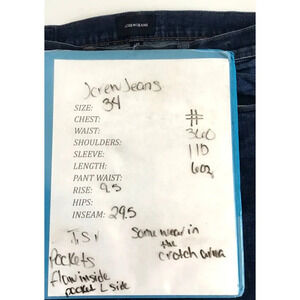 J.CREW
Jcrew Jeans
SIZE: 34
CHEST: #
WAIST: 360
SHOULDERS: 110
SLEEVE:
LENGTH: 6oz
PANT WAIST:
RISE: 9.5
HIPS:
INSEAM: 29.5
Some wear in
the
crotch
Pockets
Flaw inside
pocket L side